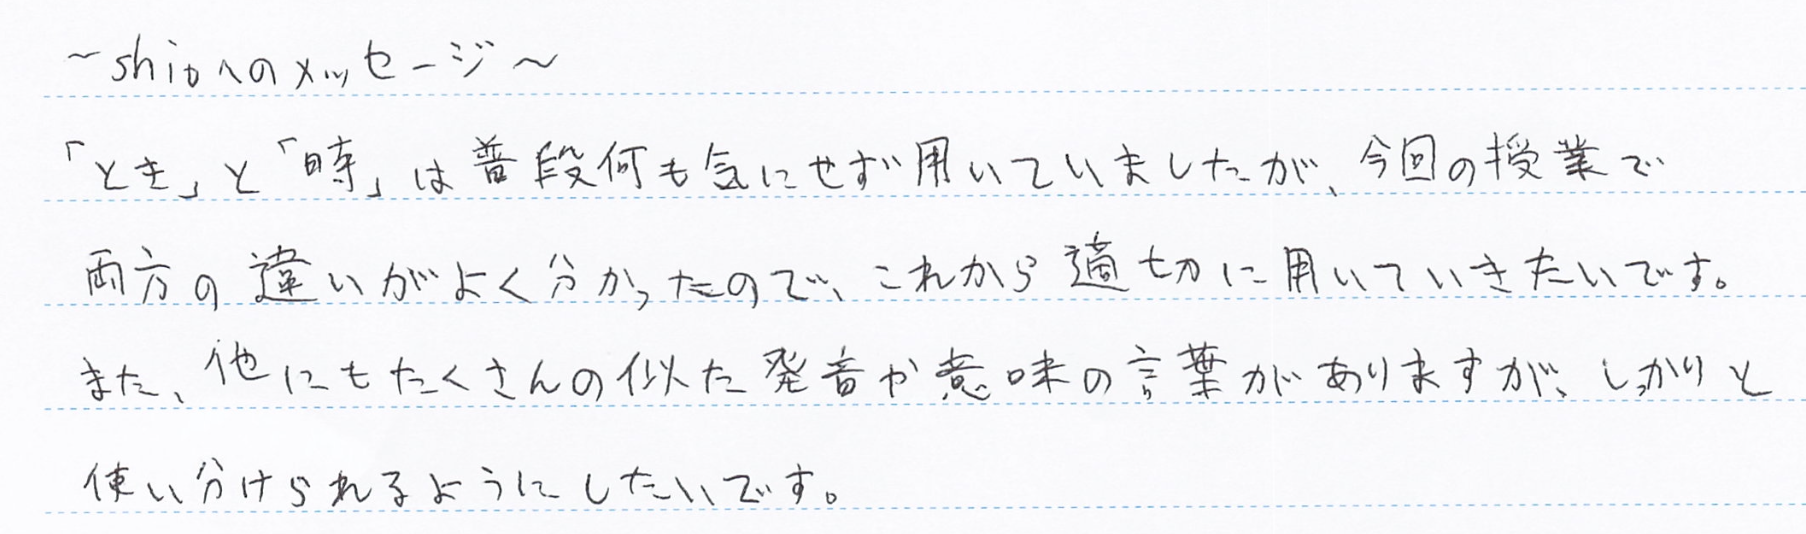 ～shioへのメッセージ～
「とき」と「時」は普段何も気にせず用いていましたが、今回の授業で
両方の違いがよく分かったので、これから適切に用いていきたいです。
また、他にもたくさんの似た発音や意味の言葉がありますが、しっかりと
使い分けられるようにしたいです。